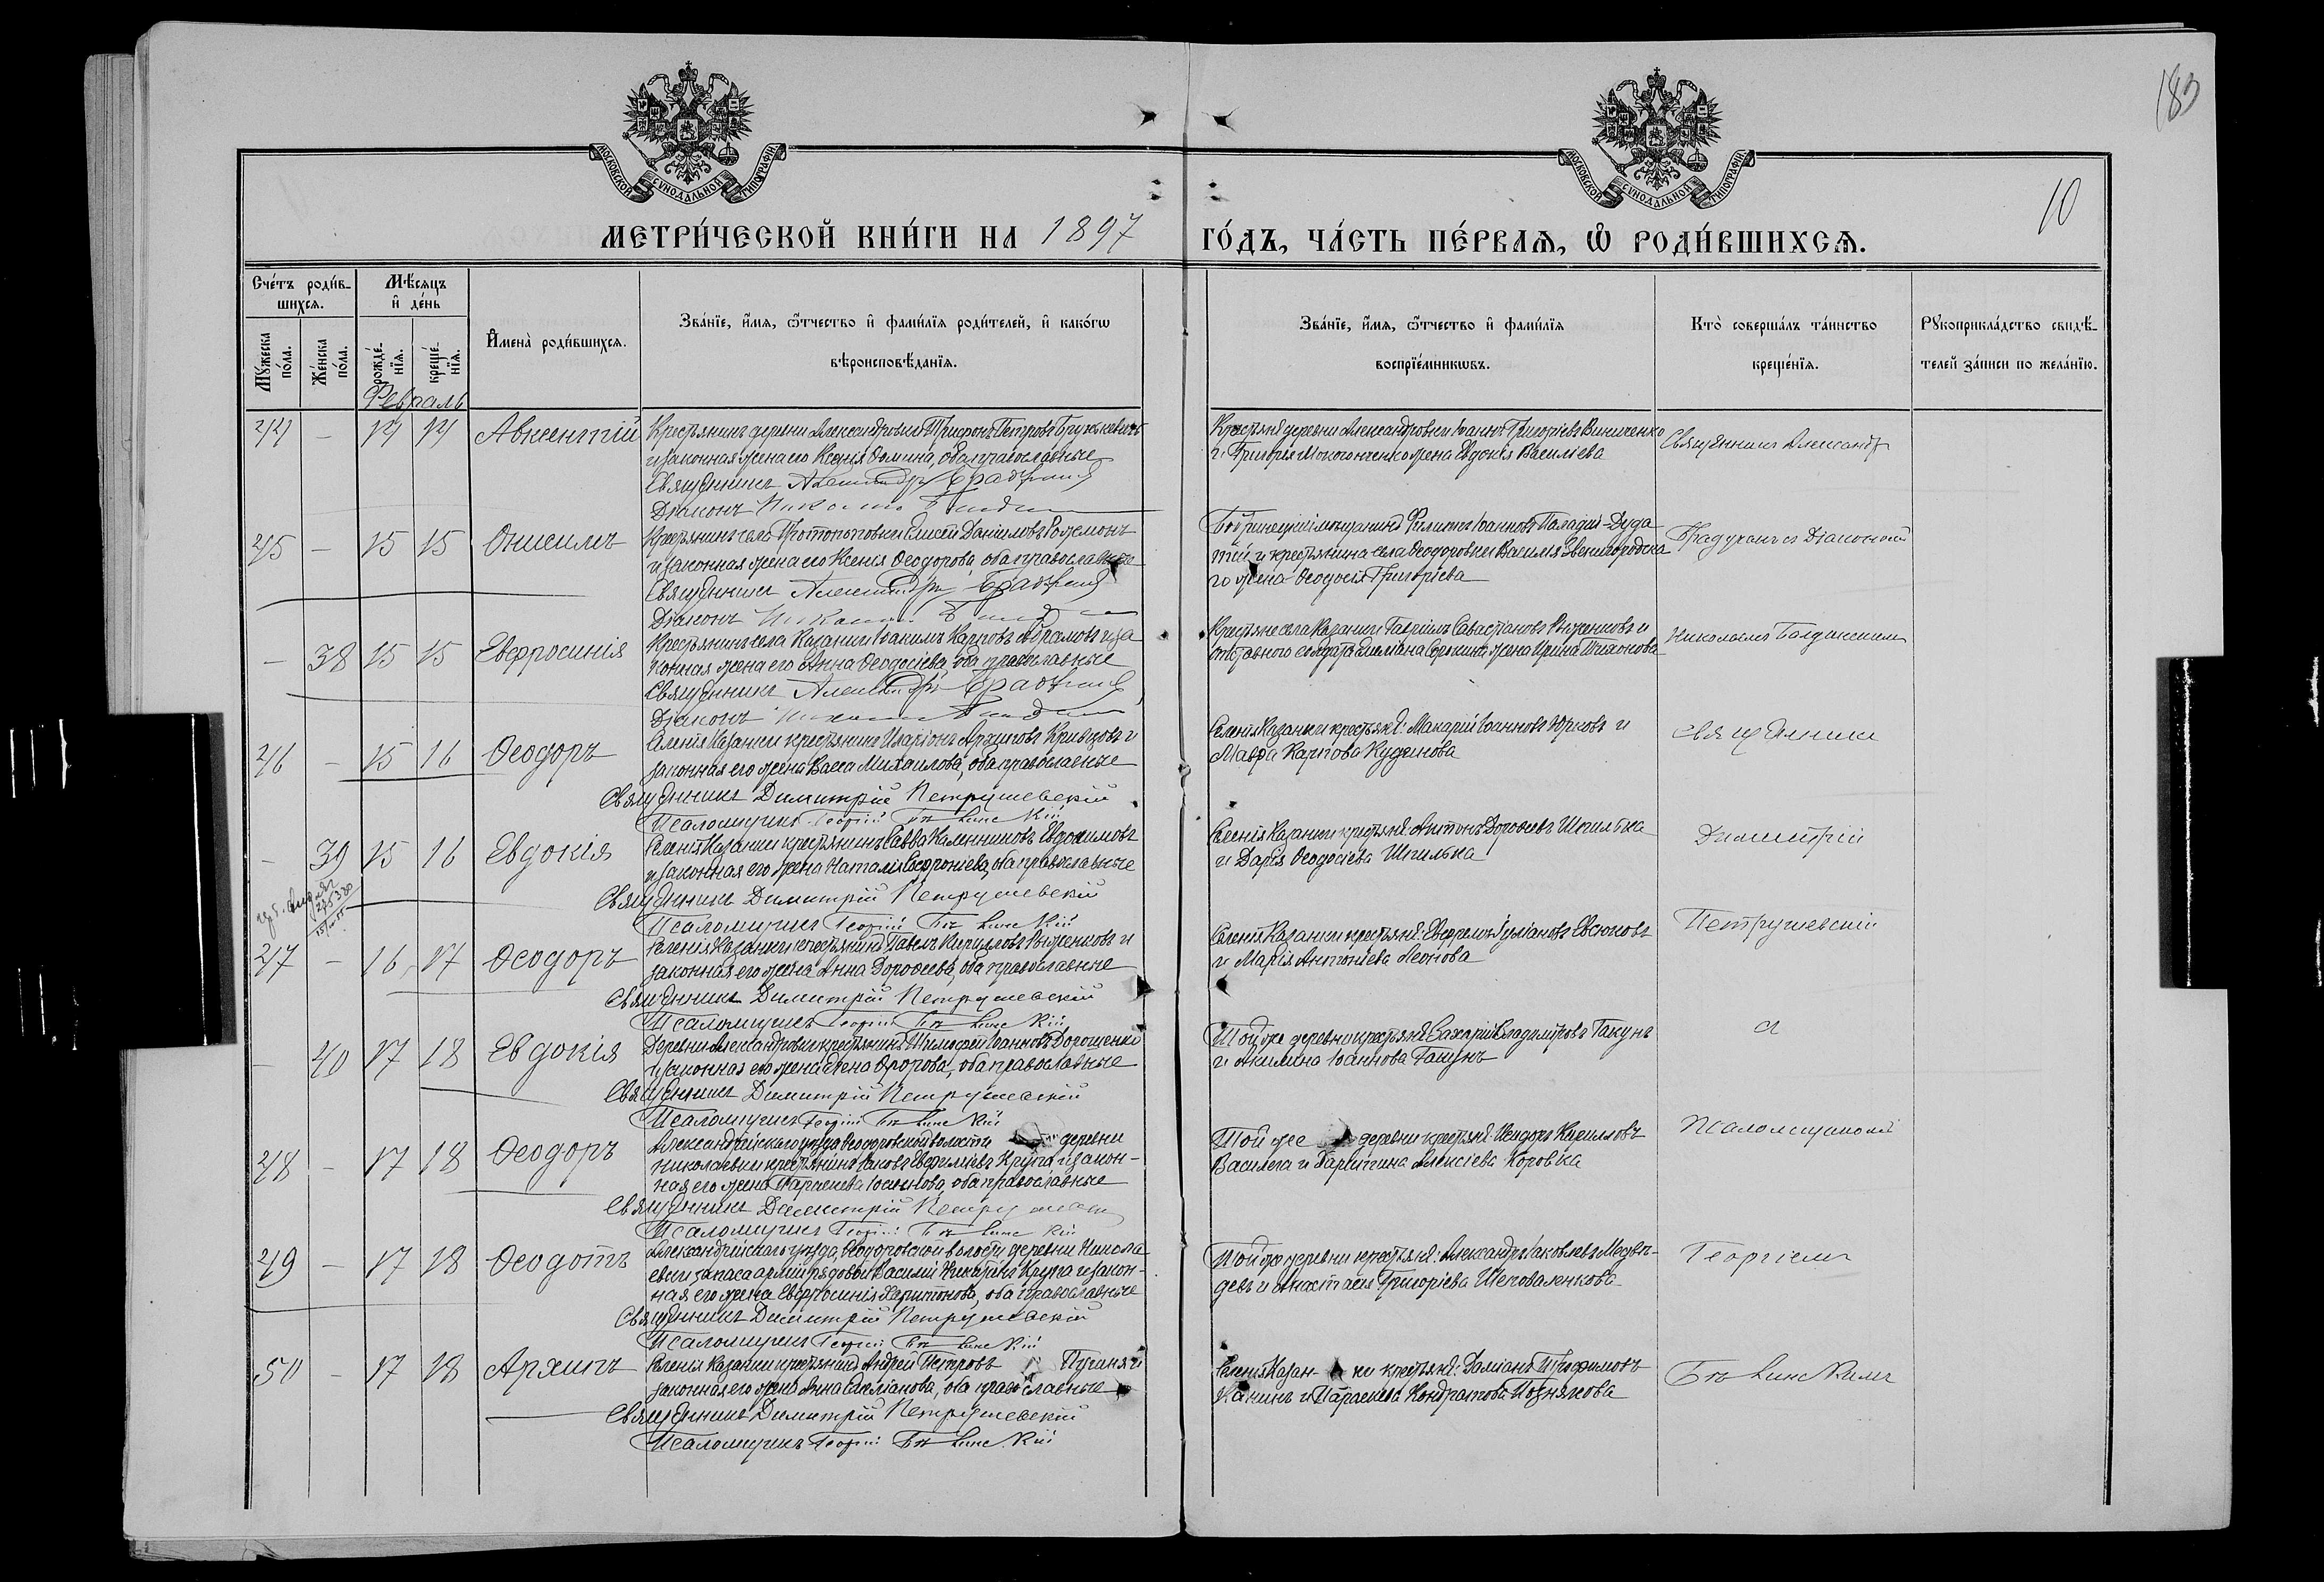 183
10
МОСКОВСКОЙ СѴНОДАЛЬНОЙ ТИПОГРАФІИ
МОСКОВСКОЙ СѴНОДАЛЬНОЙ ТИПОГРАФІИ
МЕТРИ́ЧЕСКОЙ КНИ́ГИ НА 1897 ГО́ДЪ, ЧА́СТЬ ПЕ́РВАѦ, Ѡ҆ РОДИ́ВШИХСѦ.
Сче́тъ роди́в-
шихсѧ.
Мѣ́сѧцъ
и҆ де́нь
Мꙋ́жеска
по́ла.
Же́нска
по́ла.
рожде́-
нїѧ.
креще́-
нїѧ.
И҆мена̀ роди́вшихсѧ.
Зва́нїе, и҆́мѧ, ѻ҆́тчество и҆ фами́лїѧ роди́телей, и҆ како́гѡ
вѣроисповѣ́данїѧ.
Зва́нїе, и҆́мѧ, ѻ҆́тчество и҆ фами́лїѧ
воспрїе́мникѡвъ.
Кто̀ соверша́лъ та́инство
креще́нїѧ.
Рꙋкоприкла́дство свидѣ́-
телей за́писи по жела́нїю.
Февраль
44 - 14 14 Авксентій
Крестьянинъ деревни Александровки Трифонъ Петровъ
и законная жена его Ксенія Ѳомина, оба православные
Священникъ Александръ
Діаконъ
Крестьяне деревни Александровки Іоаннъ Григоріевъ Виниченко
и Григорія жена Евдокія Василіева
Священникъ Александръ
45 - 15 15 Онисимъ
Крестьянинъ села Протопоповки Елисей Даніиловъ
и законная жена его Ксенія Ѳеодорова, оба православные
Священникъ Александръ
Діаконъ
Бобринецкій мещанинъ Филиппъ Іоанновъ Паладій-Дуда
и крестьянина села Ѳеодоровки Василія Звенигородска
го жена Ѳеодосія Григоріева
съ Діакономъ
- 38 15 15 Евфросинія
Крестьянинъ села Казанки Іоакимъ Карповъ Абрамовъ и за
конная жена его Анна Ѳеодосіева, оба православные
Священникъ Александръ
Діаконъ
Крестьяне села Казанки Гавріилъ Савастіановъ Рыженковъ и
отставного солдата Емиліана Сорокина жена Ирина Тихонова
Николаемъ
46 - 15 16 Ѳеодоръ
Селенія Казанки крестьянинъ Иларіонъ Архиповъ Кривцовъ и
законная его жена Васса Михаилова, оба православные
Священникъ Димитрій Петрушевскій
Псаломщикъ Георгій
Селенія Казанки крестьяне: Макарій Іоанновъ Юрковъ и
Мавра Карпова Кудинова
Священникъ
- 39 15 16 Евдокія
Селенія Казанки крестьянинъ Савва Калинниковъ Евдокимовъ
и законная его жена Наталія Софроніева, оба православные
Священникъ Димитрій Петрушевскій
Псаломщикъ Георгій
Селенія Казанки крестьяне: Антонъ Дороѳеевъ Шпилька
и Дарія Ѳеодосіева Шпилька
Димитрій
47 - 16 17 Ѳеодоръ
Селенія Казанки крестьянинъ Павелъ Кирилловъ Рыженковъ и
законная его жена Анна Дороѳеева, оба православные
Священникъ Димитрій Петрушевскій
Псаломщикъ Георгій
Селенія Казанки крестьяне: Ефремъ Іуліановъ Евсюковъ
и Марія Антоніева Леонова
Петрушевскій
- 40 17 18 Евдокія
Деревни Александровки крестьянинъ Тимоѳей Іоанновъ Дорошенко
и законная его жена Елена Флорова, оба православные
Священникъ Димитрій Петрушевскій
Псаломщикъ Георгій
Той же деревни крестьяне: Захарій Владиміровъ Гакунъ
и Акилина Іоаннова Гакунъ
съ
48 - 17 18 Ѳеодоръ
Александрійскаго уѣзда Ѳеодоровской волости деревни
Николаевки крестьянинъ Іаковъ Евфиміевъ Крупа и закон-
ная его жена Параскева Іоаннова, оба православные
Священникъ Димитрій
Псаломщикъ Георгій
Той же деревни крестьяне: Исидоръ Кирилловъ
Василега и Харитина Алексіева Коровка
Псаломщикомъ
49 - 17 18 Ѳеодотъ
Александрійскаго уѣзда, Ѳеодоровской волости, деревни Никола
евки запаса арміи рядовой Василій Никитинъ Крупа и закон-
ная его жена Евфросинія Харитонова, оба православные
Священникъ Димитрій Петрушевскій
Псаломщикъ Георгій
Той же деревни крестьяне: Александръ Іаковлевъ Медвѣ-
девъ и Анастасія Григоріева Шаповаленкова
Георгіемъ
50 - 17 18 Архипъ
Селенія Казанки крестьянинъ Андрей Петровъ
законная его жена Анна Емиліанова, оба православные
Священникъ Димитрій Петрушевскій
Псаломщикъ Георгій
Селенія Казан-ки крестьяне: Даміанъ Трофимовъ
и Параскева Кондратова Познякова